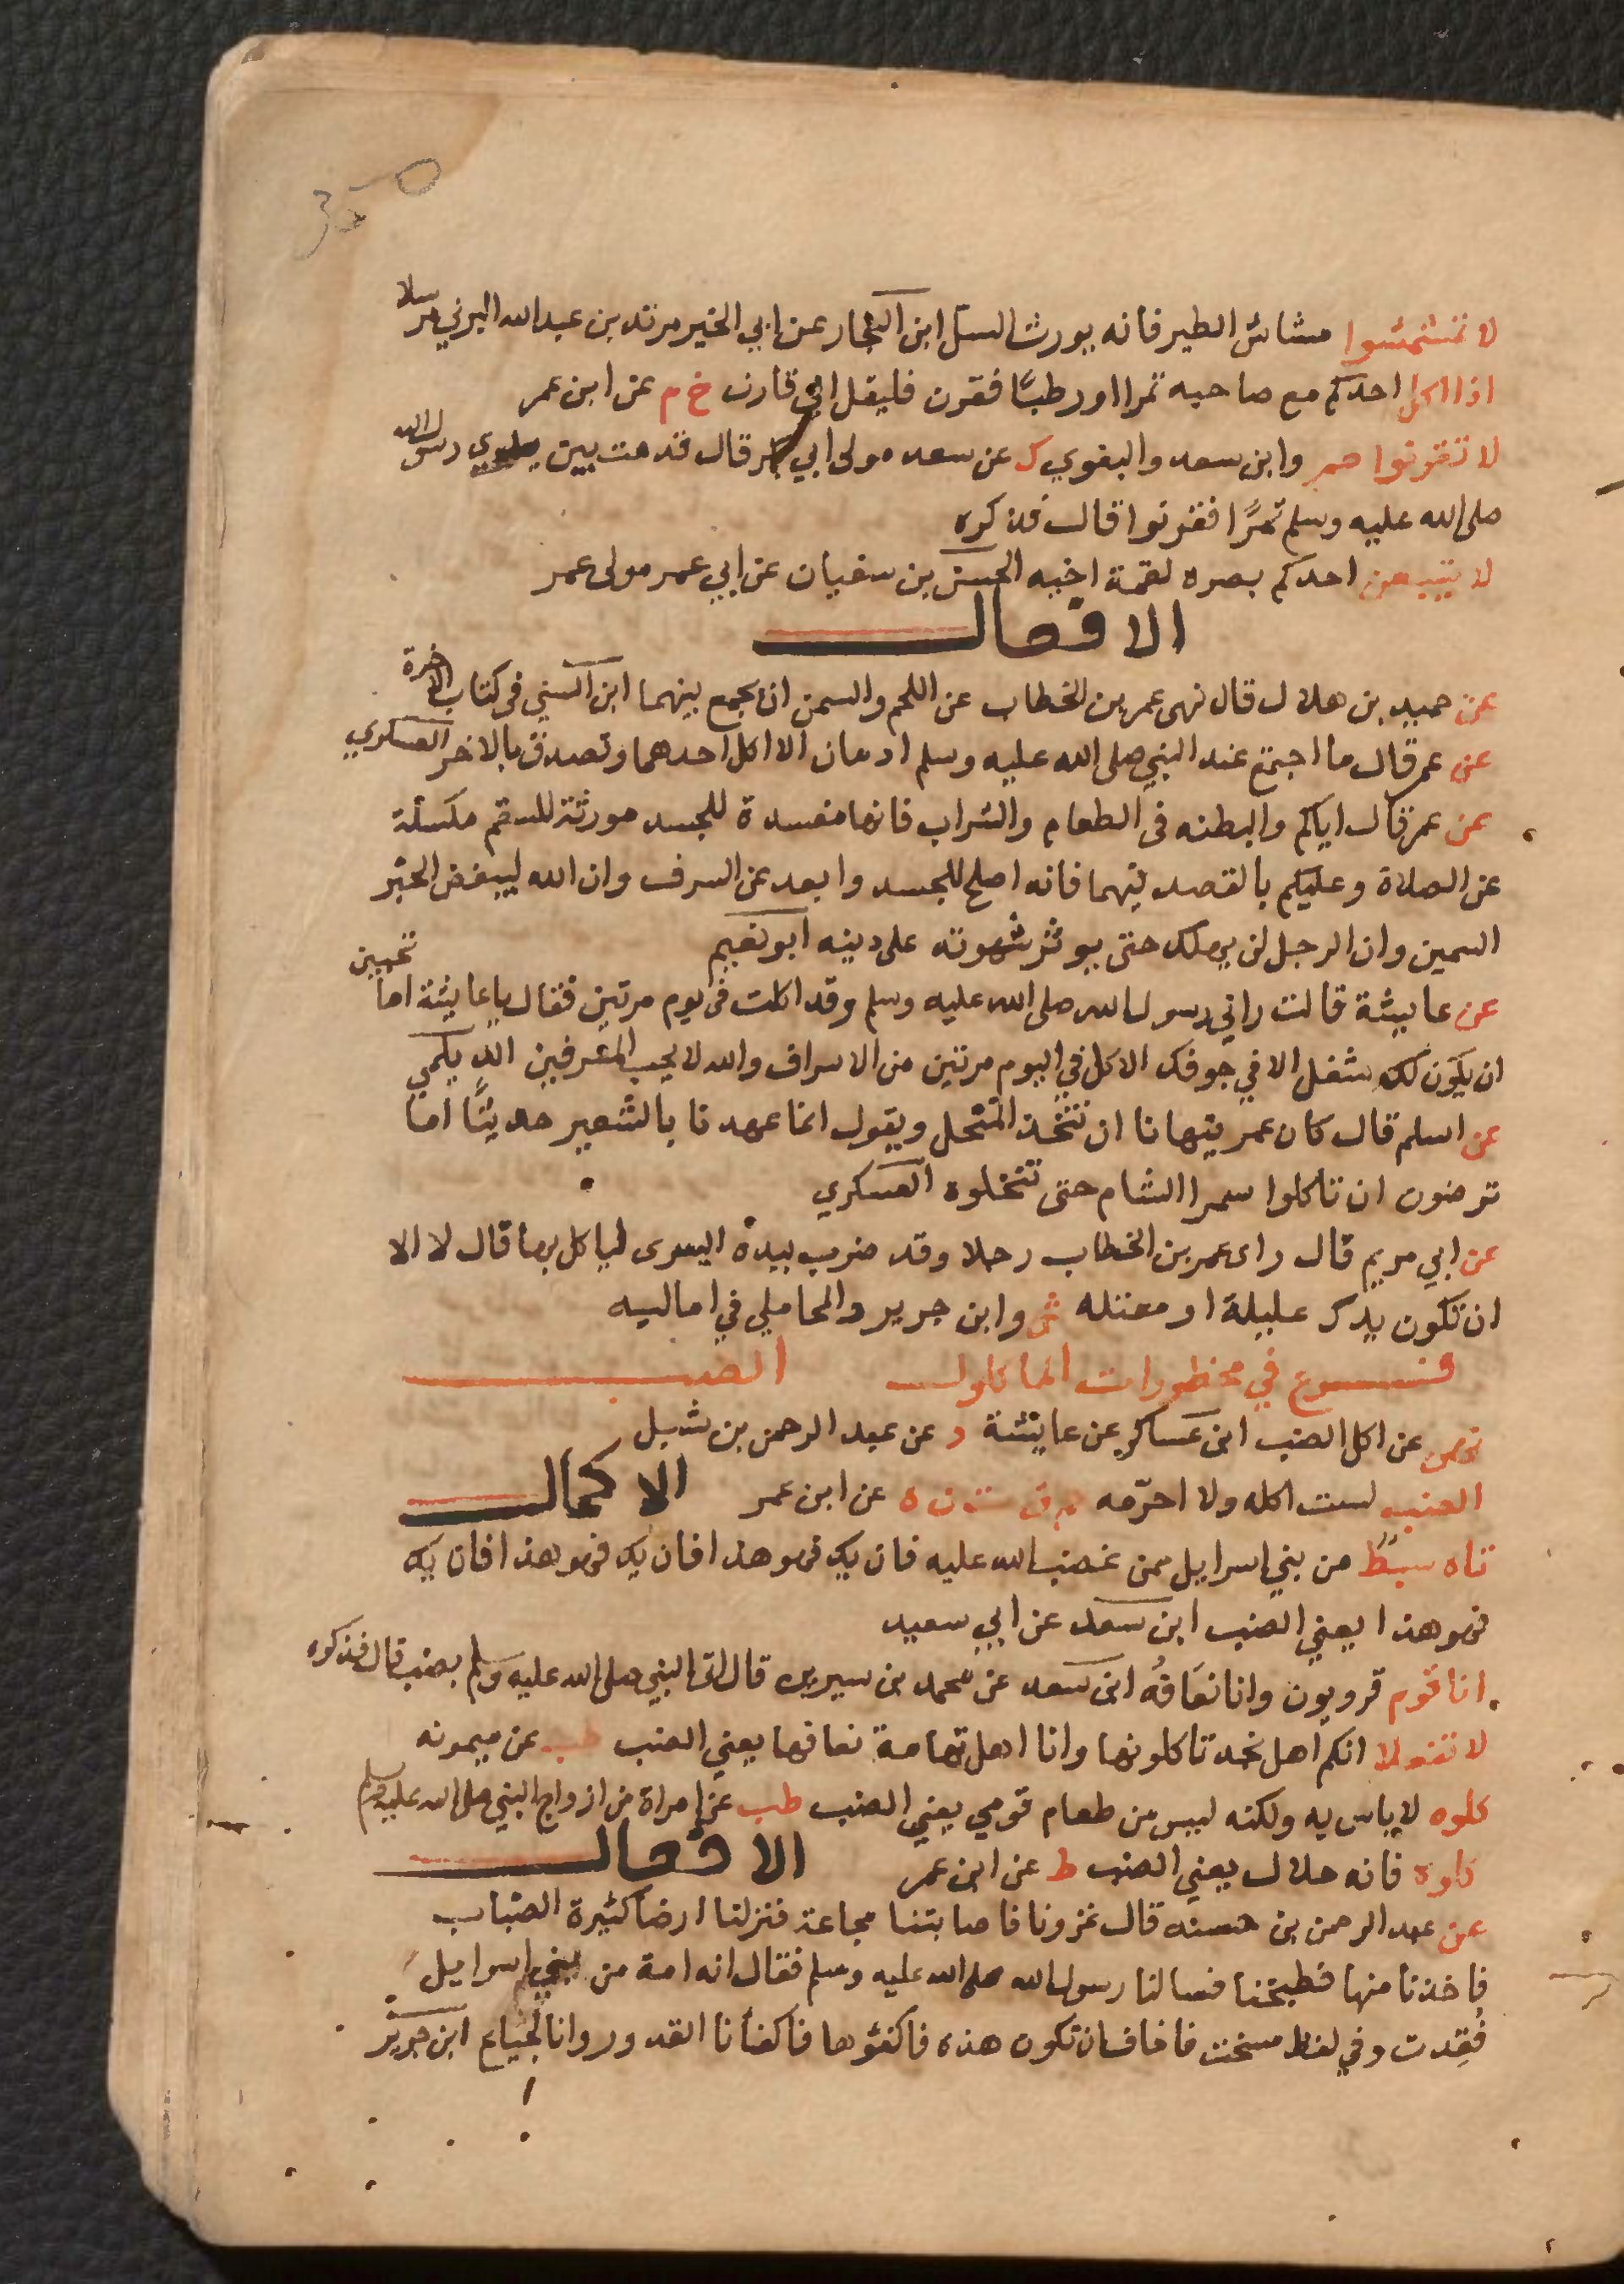 350
لا تمشمشوا مشاش الطير فانه يورث السل ابن النجار عن ابي الخير مرتد بن عبد الله اليزني مرسلا
اذا اكل احدكم مع صاحبه تمرا او رطبًا فقرن فليقل اني قارن خ م عن ابن عمر
لا تقرنوا حم وابن سعد والبغوي ك عن سعد مولى ابي بكر قال قدمت بين يدي رسول الله
صلى الله عليه وسلم تمرًا فقرنوا قال فذكره
لا يتبعن احدكم بصره لقمة اخيه الحسن بن سفيان عن ابي عمر مولى عمر
الافعال
عن حميد بن هلال قال نهى عمر بن الخطاب عن اللحم والسمن ان يجمع بينهما ابن السني في كتاب الاخوة
عن عمر قال ما اجتمع عند النبي صلى الله عليه وسلم ادمان الا اكل احدهما وتصدق بالاخر العسكري
عن عمر قال اياكم والبطنه في الطعام والشراب فانها مفسدة للجسد مورثة للسقم مكسلة
عن الصلاة وعليكم بالقصد فيهما فانه اصلح للجسد وابعد عن السرف وان الله ليبغض الحبر
السمين وان الرجل لن يهلك حتى يوثر شهوته على دينه ابو نعيم
عن عايشة قالت راني رسول الله صلى الله عليه وسلم وقد اكلت في يوم مرتين فقال يا عايشة اما تحبين
ان يكون لك شغل الا في جوفك الاكل في اليوم مرتين من الاسراف والله لا يحب المسرفين الديلمي
عن اسلم قال كان عمر ينهانا ان نتخذ المنخل ويقول انما عهدنا بالشعير حديثًا اما
ترضون ان تاكلوا سمرا الشام حتى تنخلوه العسكري
عن ابي مريم قال راى عمر بن الخطاب رجلا وقد ضرب بيده اليسرى لياكل بها قال لا الا
ان تكون يدك عليلة او معتله ش وابن جرير والمحاملي في اماليه
فروع في محظورات الماكول الضب
نهى عن اكل الضب ابن عساكر عن عايشة د عن عبد الرحمن بن شبل
الضب لست اكله ولا احرّمه م ق ت ن ه عن ابن عمر الاكمال
تاه سبطٌ من بني اسرايل ممن غضب الله عليه فان يك فهو هذا فان يك فهو هذا فان يك
فهو هذا يعني الضب ابن سعد عن ابي سعيد
انا قوم قرويون وانا نعافُه ابن سعد عن محمد بن سيرين قال اتى النبي صلى الله عليه وسلم بضب قال فذكره
لا تفعلا انكم اهل نجد تاكلونها وانا اهل تهامة نعافها يعني الضب طب عن ميمونه
كلوه لا باس به ولكنه ليس من طعام قومي يعني الضب طب عن امراة من ازواج النبي صلى الله عليه وسلم
كلوه فانه حلال يعني الضب ط عن ابن عمر الافعال
عن عبد الرحمن بن حسنه قال غزونا فاصابتنا مجاعة فنزلنا ارضا كثيرة الضباب
فاخذنا منها فطبخنا فسالنا رسول الله صلى الله عليه وسلم فقال انه امة من بني اسرايل
فُقِدت وفي لفظ مسخت فاخاف ان تكون هذه فاكفئوها فاكفأنا القدور وانا لجياع ابن جرير